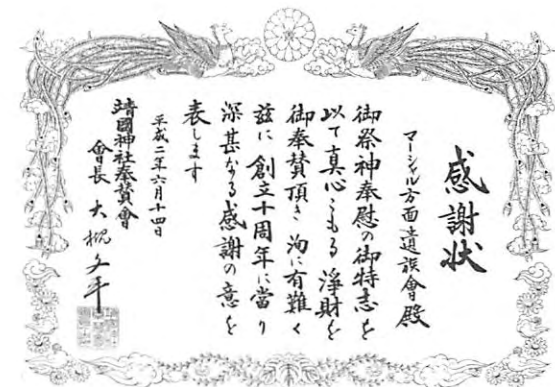 感謝状
マーシャル方面遺族會殿
御祭神奉慰の御特志を
以て真心こもる浄財を
御奉賛頂き洵に有難く
茲に創立十周年に當り
深甚なる感謝の意を
表します
平成二年六月十四日
靖國神社奉賛會
會長 大槻文平